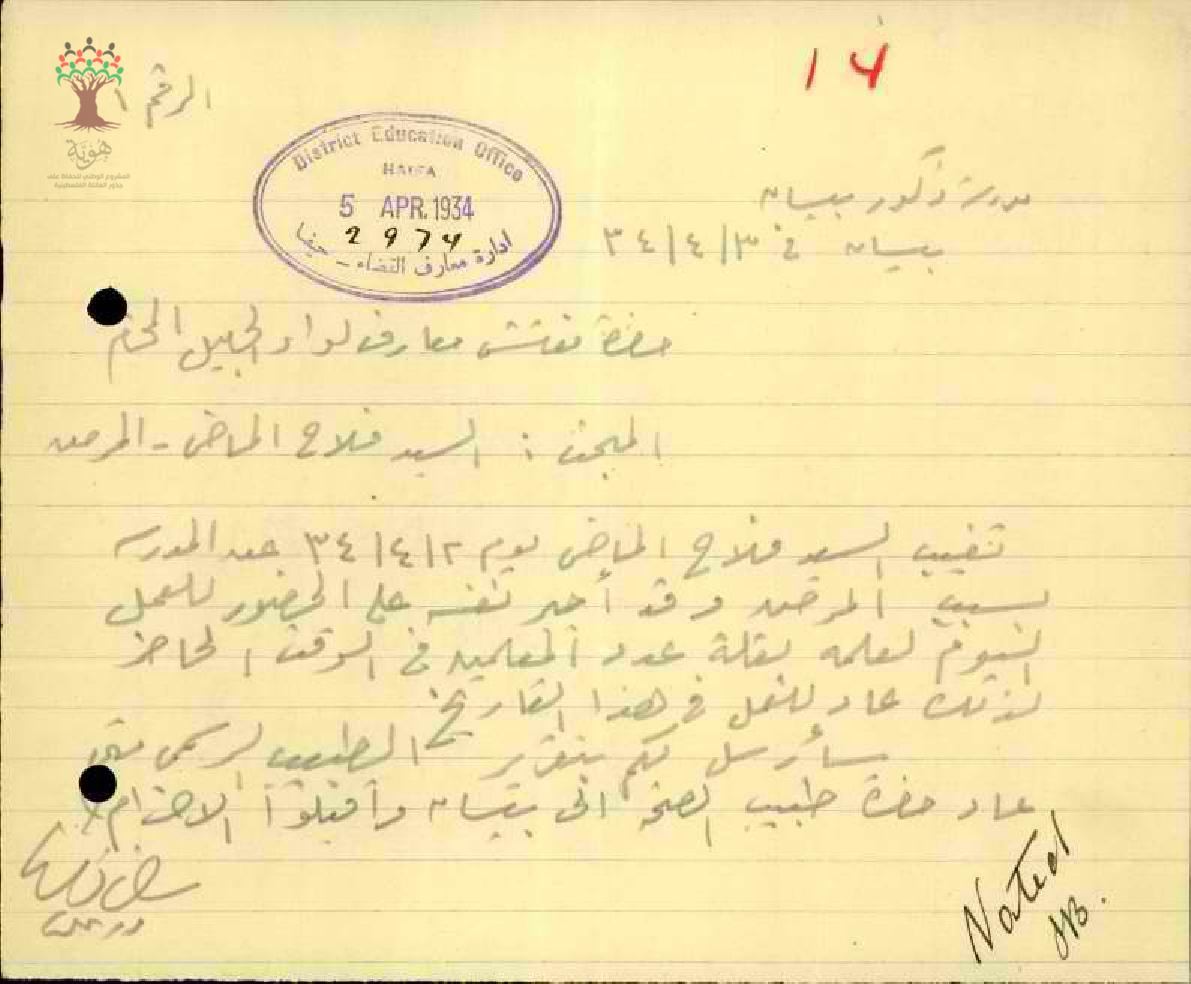 14
الرقم ١
هوية
المشروع الوطني للحفاظ على
جذور العائلة الفلسطينية
District Education Office
HAIFA
5 APR. 1934
2974
ادارة معارف القضاء – حيفا
مدرسة ذكور بيسان
بيسان في ٣/٤/٣٤
حضرة مفتش معارف لواء الجليل المحترم
المبحث : السيد فلاح الماضي - المرض
تغيب السيد فلاح الماضي يوم ٢/٤/٣٤ عن المدرسة
بسبب المرض وقد أجبر نفسه على الحضور للعمل
اليوم لعلمه بقلة عدد المعلمين في الوقت الحاضر
لذلك عاد للعمل في هذا التاريخ
سأرسل لكم بتقرير الطبيب الرسمي متى
عاد حضرة طبيب الصحة الى بيسان واقبلوا الاحترام
Noted